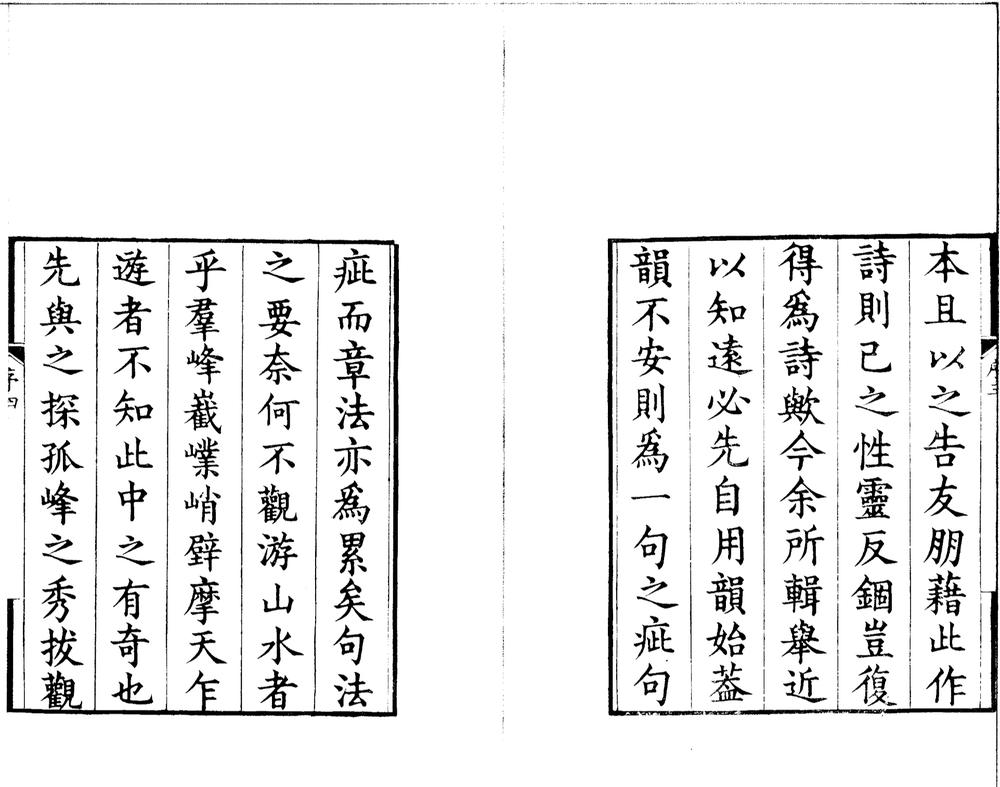 本且以之告友朋藉此作
詩則己之性靈反錮豈復
得爲詩歟今余所輯舉近
以知遠必先自用韻始葢
韻不安則爲一句之疵句
疵而章法亦爲累矣句法
之要奈何不觀游山水者
乎羣峰嶻嶪峭壁摩天乍
遊者不知此中之有奇也
先與之探孤峰之秀拔觀
序四